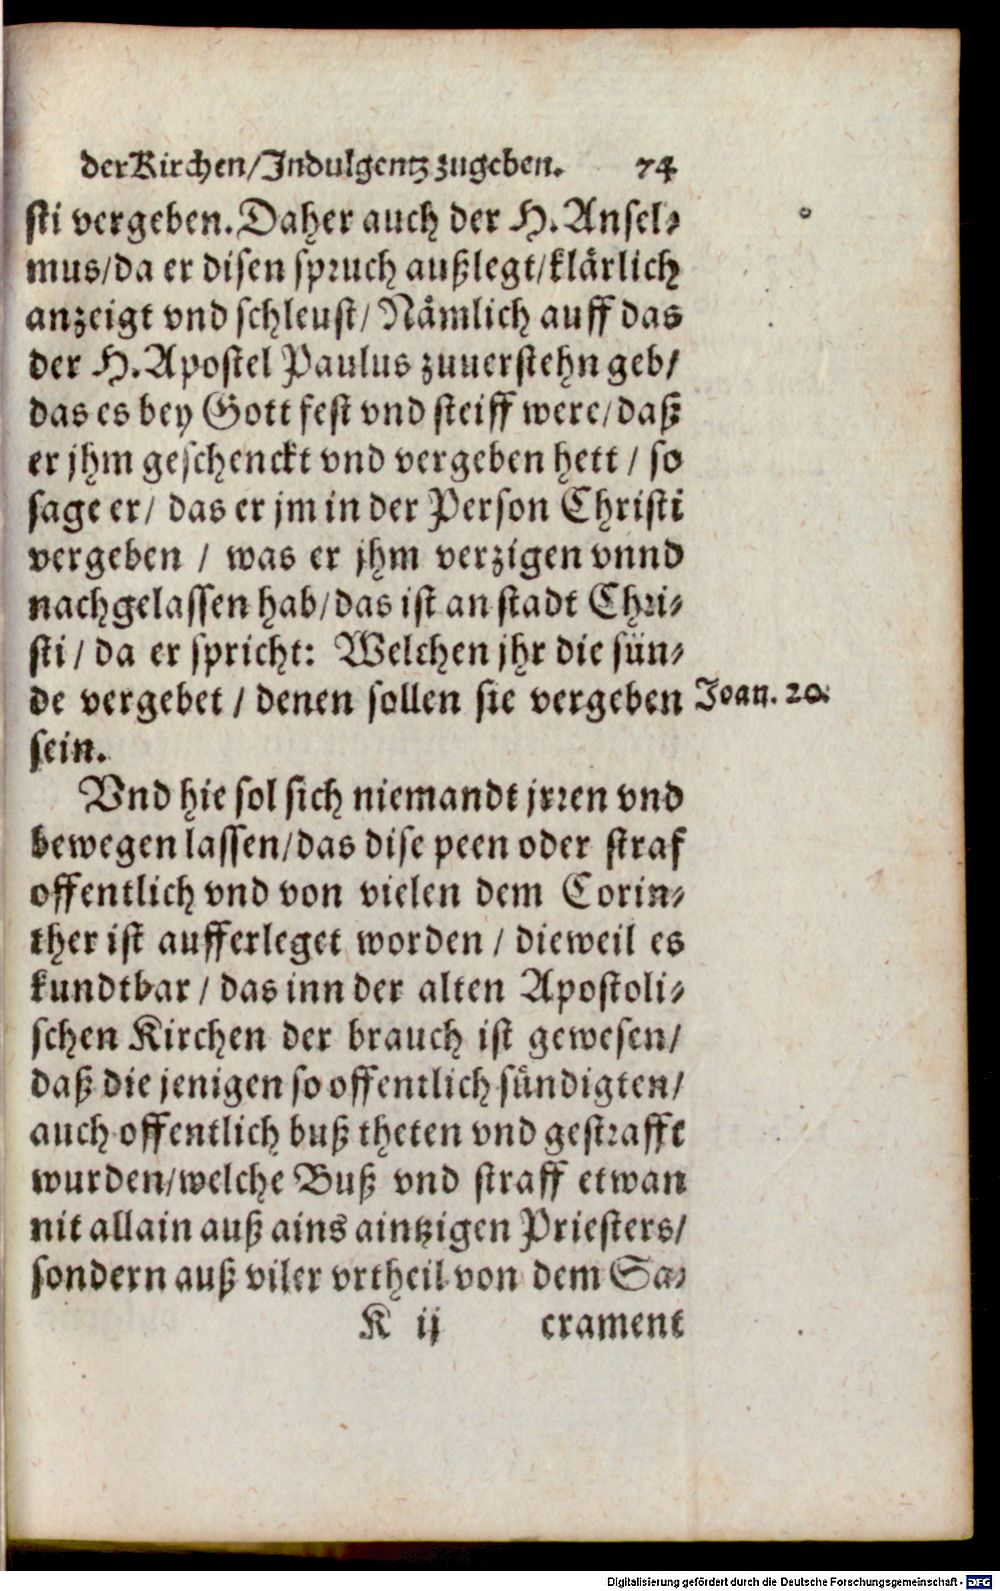 der Kirchen/Indulgentz zugeben. 74
sti vergeben. Daher auch der H. Ansel-
mus/da er disen spruch außlegt/klärlich
anzeigt vnd schleust/Nämlich auff das
der H. Apostel Paulus zuuerstehn geb/
das es bey Gott fest vnd steiff were/daß
er jhm geschenckt vnd vergeben hett / so
sage er/ das er jm in der Person Christi
vergeben / was er jhm verzigen vnnd
nachgelassen hab/das ist an stadt Chri-
sti / da er spricht: Welchen jhr die sün-
de vergebet / denen sollen sie vergeben
Joan. 20.
sein.
Vnd hie sol sich niemandt jrren vnd
bewegen lassen/das dise peen oder straf
offentlich vnd von vielen dem Corin-
ther ist aufferleget worden / dieweil es
kundtbar / das inn der alten Apostoli-
schen Kirchen der brauch ist gewesen/
daß die jenigen so offentlich sündigten/
auch offentlich buß theten vnd gestrafft
wurden/welche Buß vnd straff etwan
nit allain auß ains aintzigen Priesters/
sondern auß viler vrtheil von dem Sa-
K ij crament
Digitalisierung gefördert durch die Deutsche Forschungsgemeinschaft - DFG